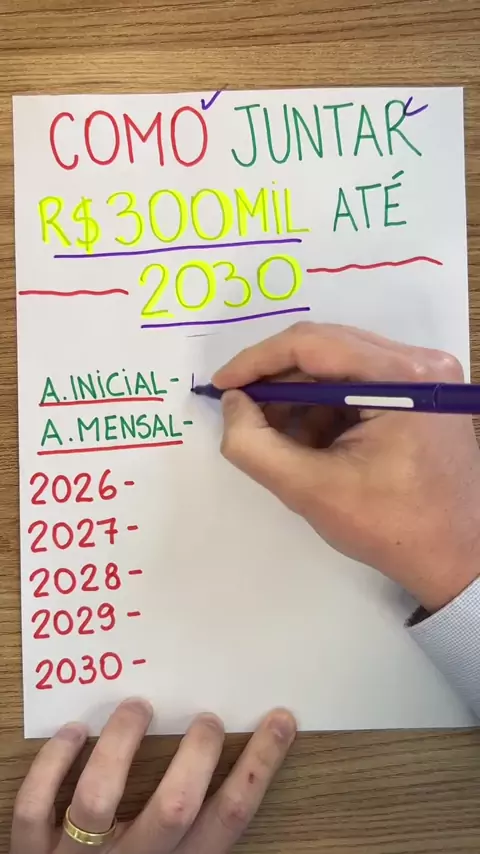 COMO JUNTAR
R$300MIL ATÉ
2030
A.INICIAL-
A.MENSAL-
2026-
2027-
2028-
2029-
2030-